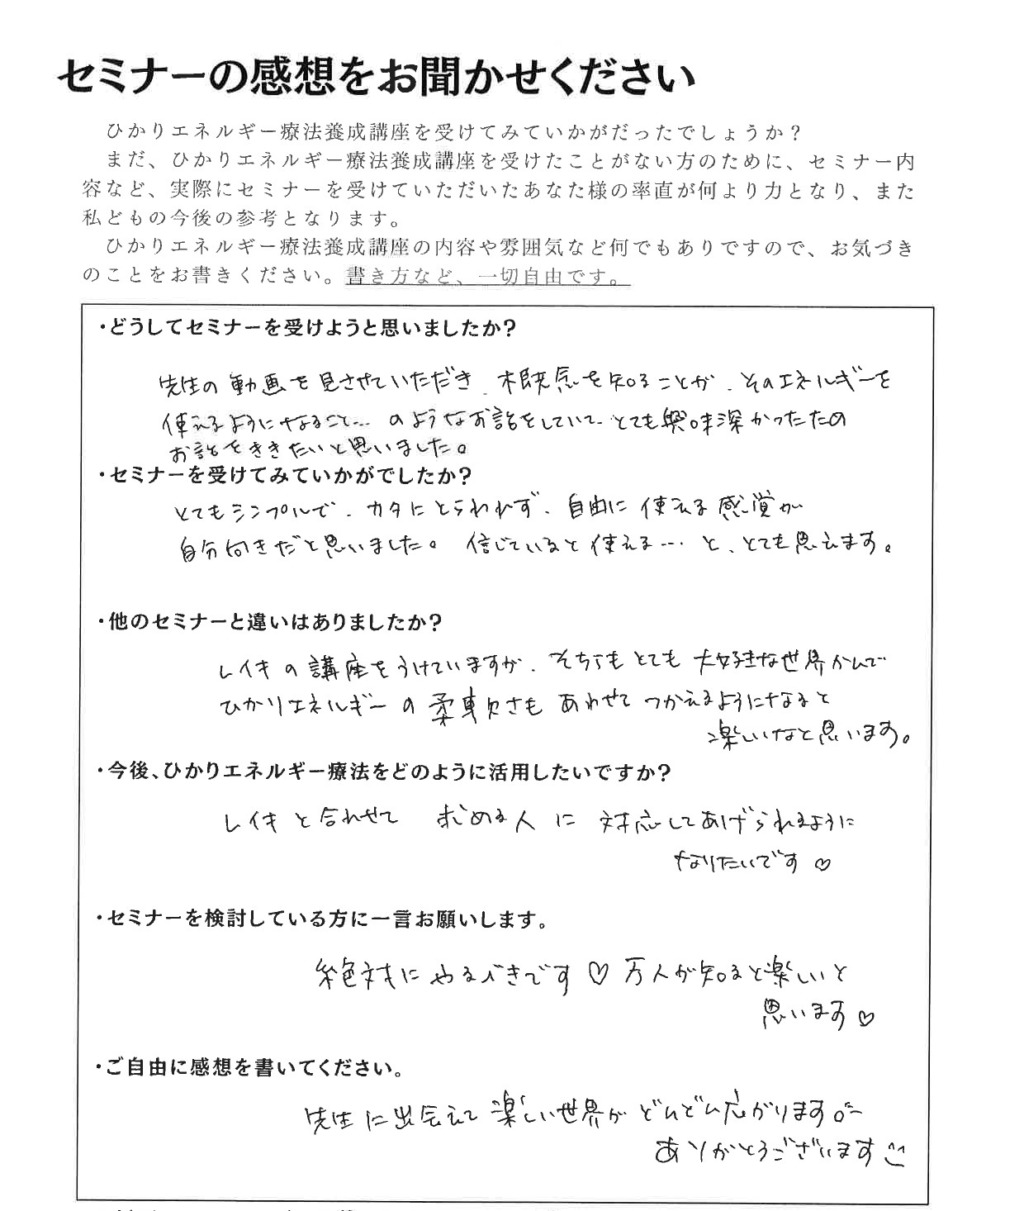 セミナーの感想をお聞かせください
ひかりエネルギー療法養成講座を受けてみていかがだったでしょうか？
まだ、ひかりエネルギー療法養成講座を受けたことがない方のために、セミナー内
容など、実際にセミナーを受けていただいたあなた様の率直が何より力となり、また
私どもの今後の参考となります。
ひかりエネルギー療法養成講座の内容や雰囲気など何でもありですので、お気づき
のことをお書きください。書き方など、一切自由です。
・どうしてセミナーを受けようと思いましたか？
先生の動画を見させていただき、概念を知ることが、そのエネルギーを
使えるようになること… のようなお話をしていて、とても興味深かったため
お話をききたいと思いました。
・セミナーを受けてみていかがでしたか？
とてもシンプルで、カタにとらわれず、自由に使える感覚が
自分向きだと思いました。信じていると使える… と、とても思えます。
・他のセミナーと違いはありましたか？
レイキの講座をうけていますが、そちらもとても大好きな世界かんで
ひかりエネルギーの柔軟さもあわせてつかえるようになると
楽しいなと思います。
・今後、ひかりエネルギー療法をどのように活用したいですか？
レイキと合わせて 求める人に対応してあげられるように
なりたいです♡
・セミナーを検討している方に一言お願いします。
絶対にやるべきです♡万人が知ると楽しいと
思います♡
・ご自由に感想を書いてください。
先生に出会えて楽しい世界がどんどん広がります。
ありがとうございます